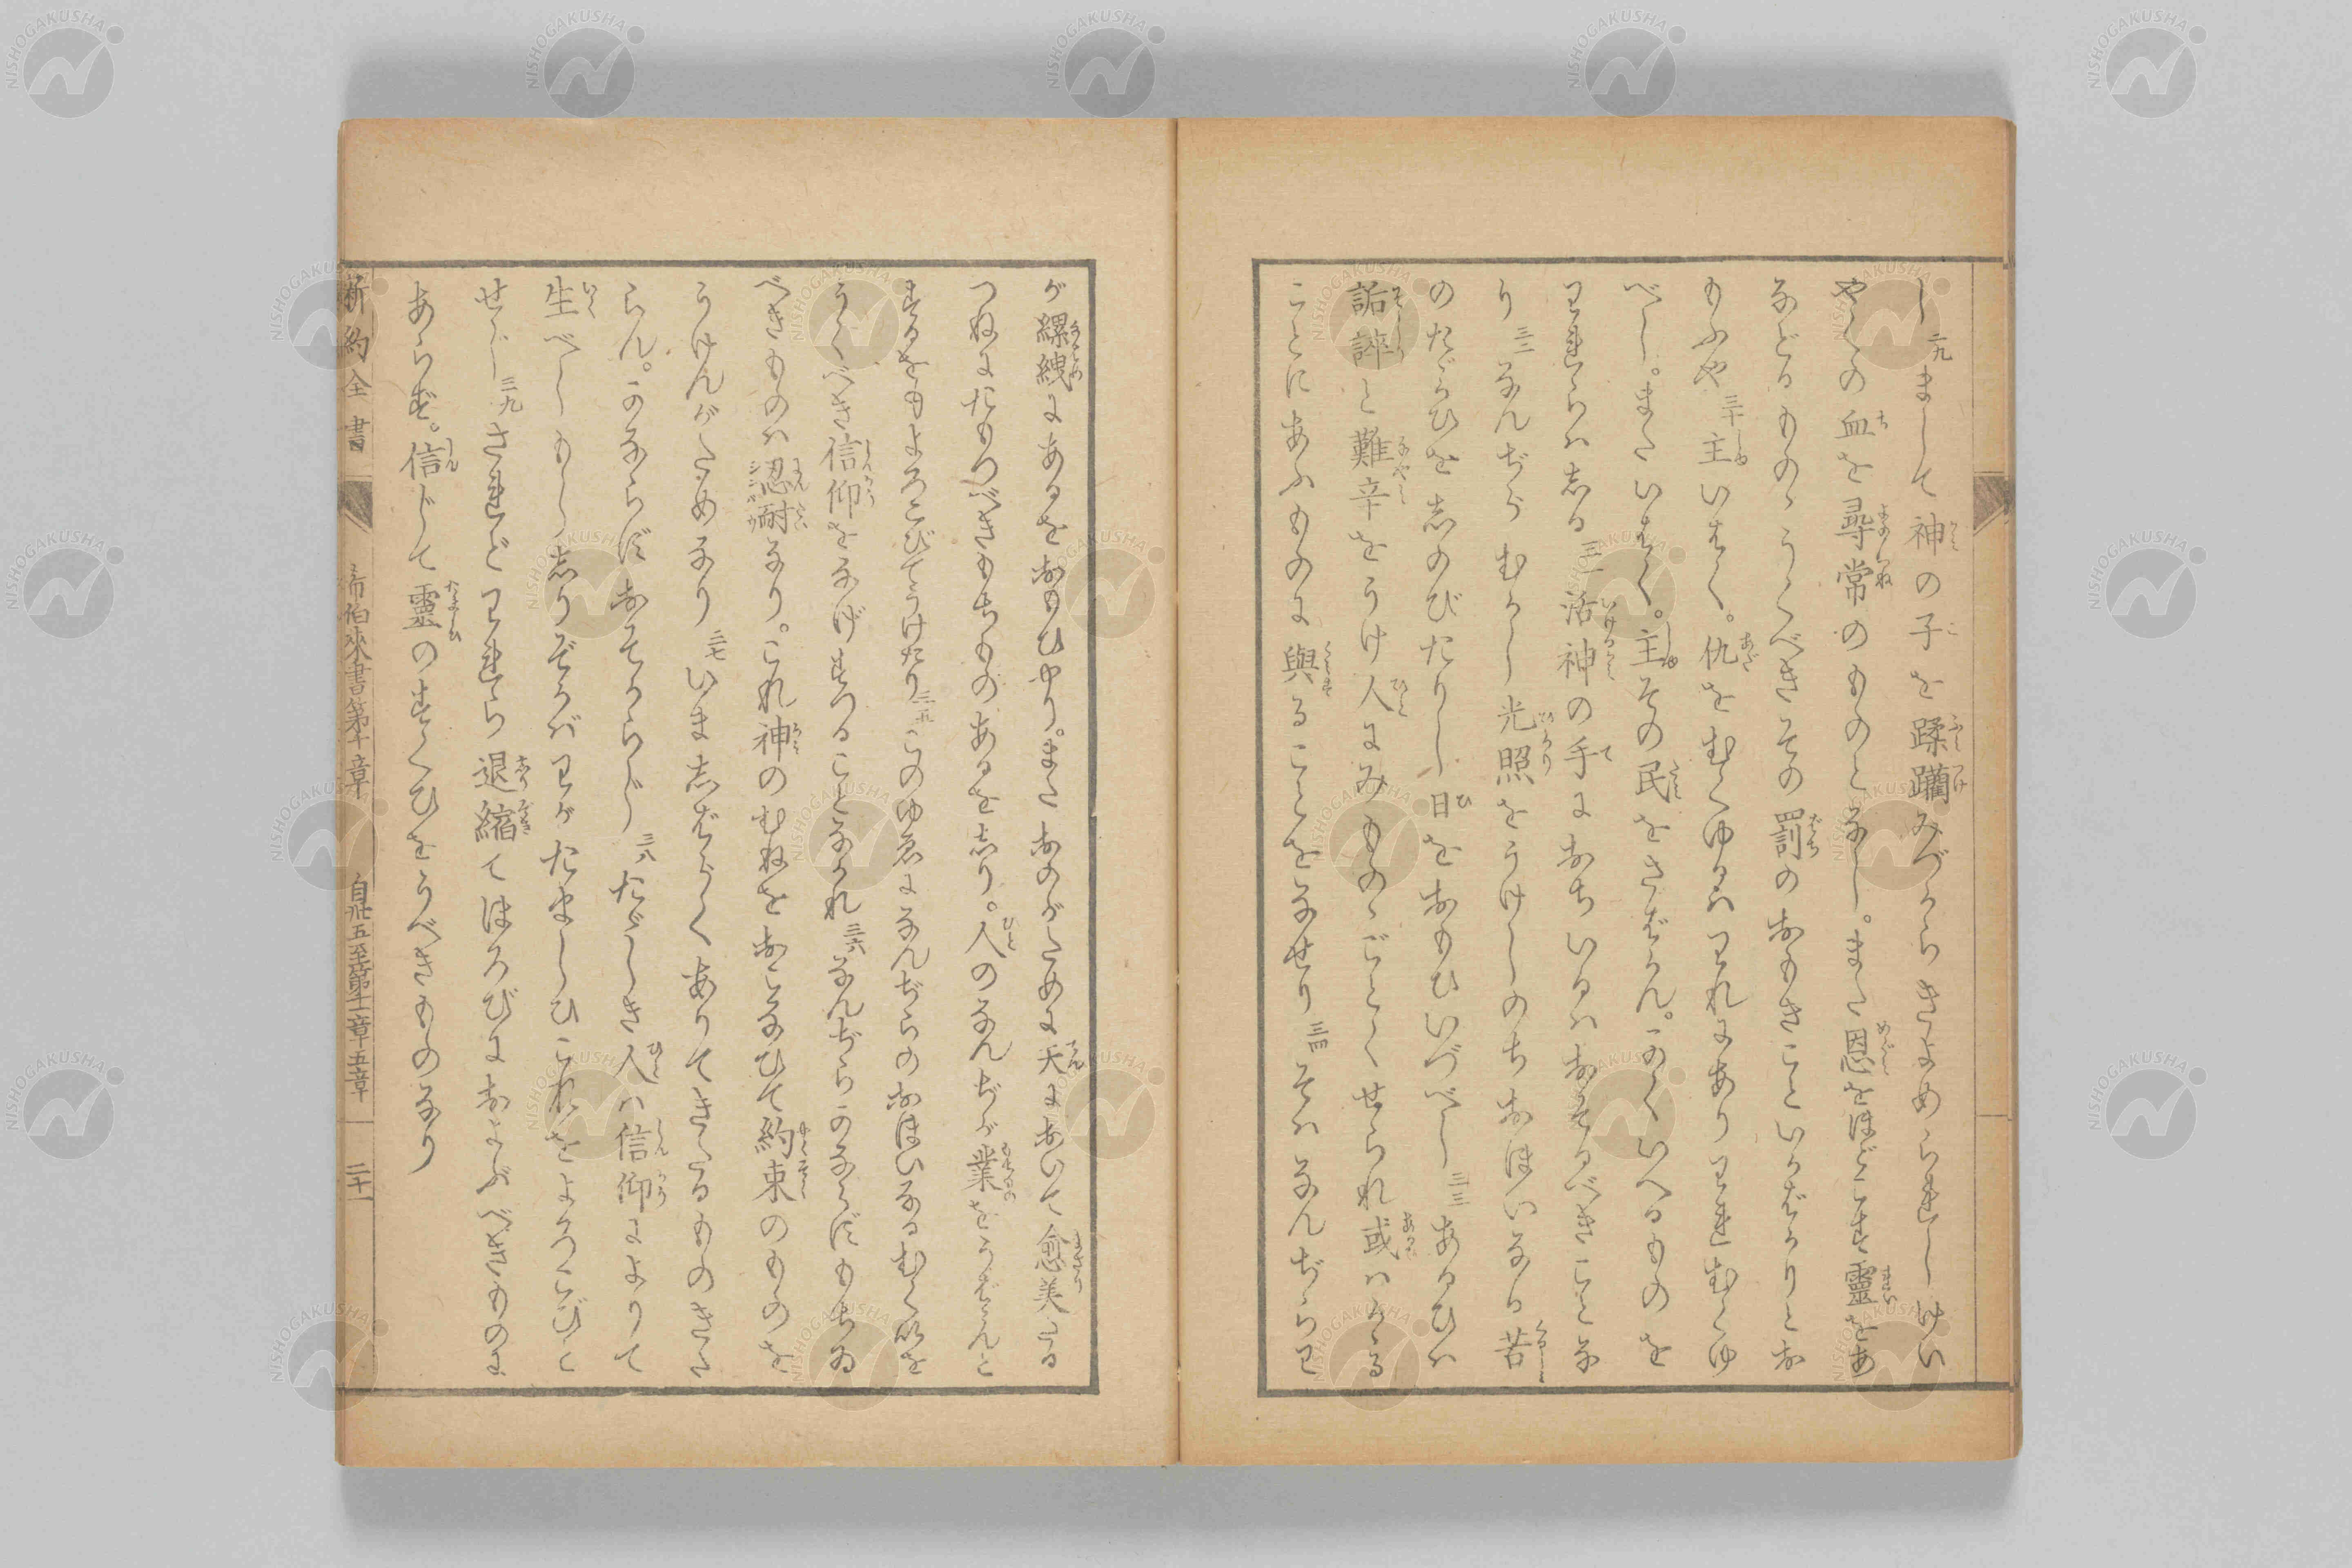 し 二九 まして神の子を蹂躪みづからきよめられしけい
やくの血を尋常のものとなし。また恩をほどこす靈をあ
などるものゝうくべきその罰のおもきこといかばかりとお
もふや 三十 主いはく。仇をむくゆるハわれにありわれむくゆ
べし。またいはく。主その民をさばかん。かくいへるものを
われらハしる 三一 活神の手におちいるハおそるべきことな
り 三二 なんぢらむかし光照をうけしのちおほいなる苦
のたゝかひをしのびたりし日をおもひいづべし 三三 あるひハ
詬誶と難辛をうけ人にみものゝごとくせられ或ハかゝる
ことにあふものに與ることをなせり 三四 そハなんぢらわ
が縲絏にあるをおもひやり。またおのがために天において愈美たる
つねにたもつべきもちものあるをしり。人のなんぢが業をうばはんと
するをもよろこびてうけたり 三五 このゆゑになんぢらのおほいなるむくいを
うくべき信仰をなげすつることなかれ 三六 なんぢらかならずもちゐ
べきものハ忍耐なり。これ神のむねをおこなひて約束のものを
うけんがためなり 三七 いましばらくありてきたるものきた
らん。かならずおそからじ 三八 たゞしき人ハ信仰によりて
生べしもししりぞかバわがたましひこれをよろこびと
せじ 三九 されどわれら退縮てほろびにおよぶべきものに
あらず。信じて靈のすくひをうべきものなり
新約全書 希伯來書第十章 自廿五至第十一章五章 二十一
NISHOGAKUSHA